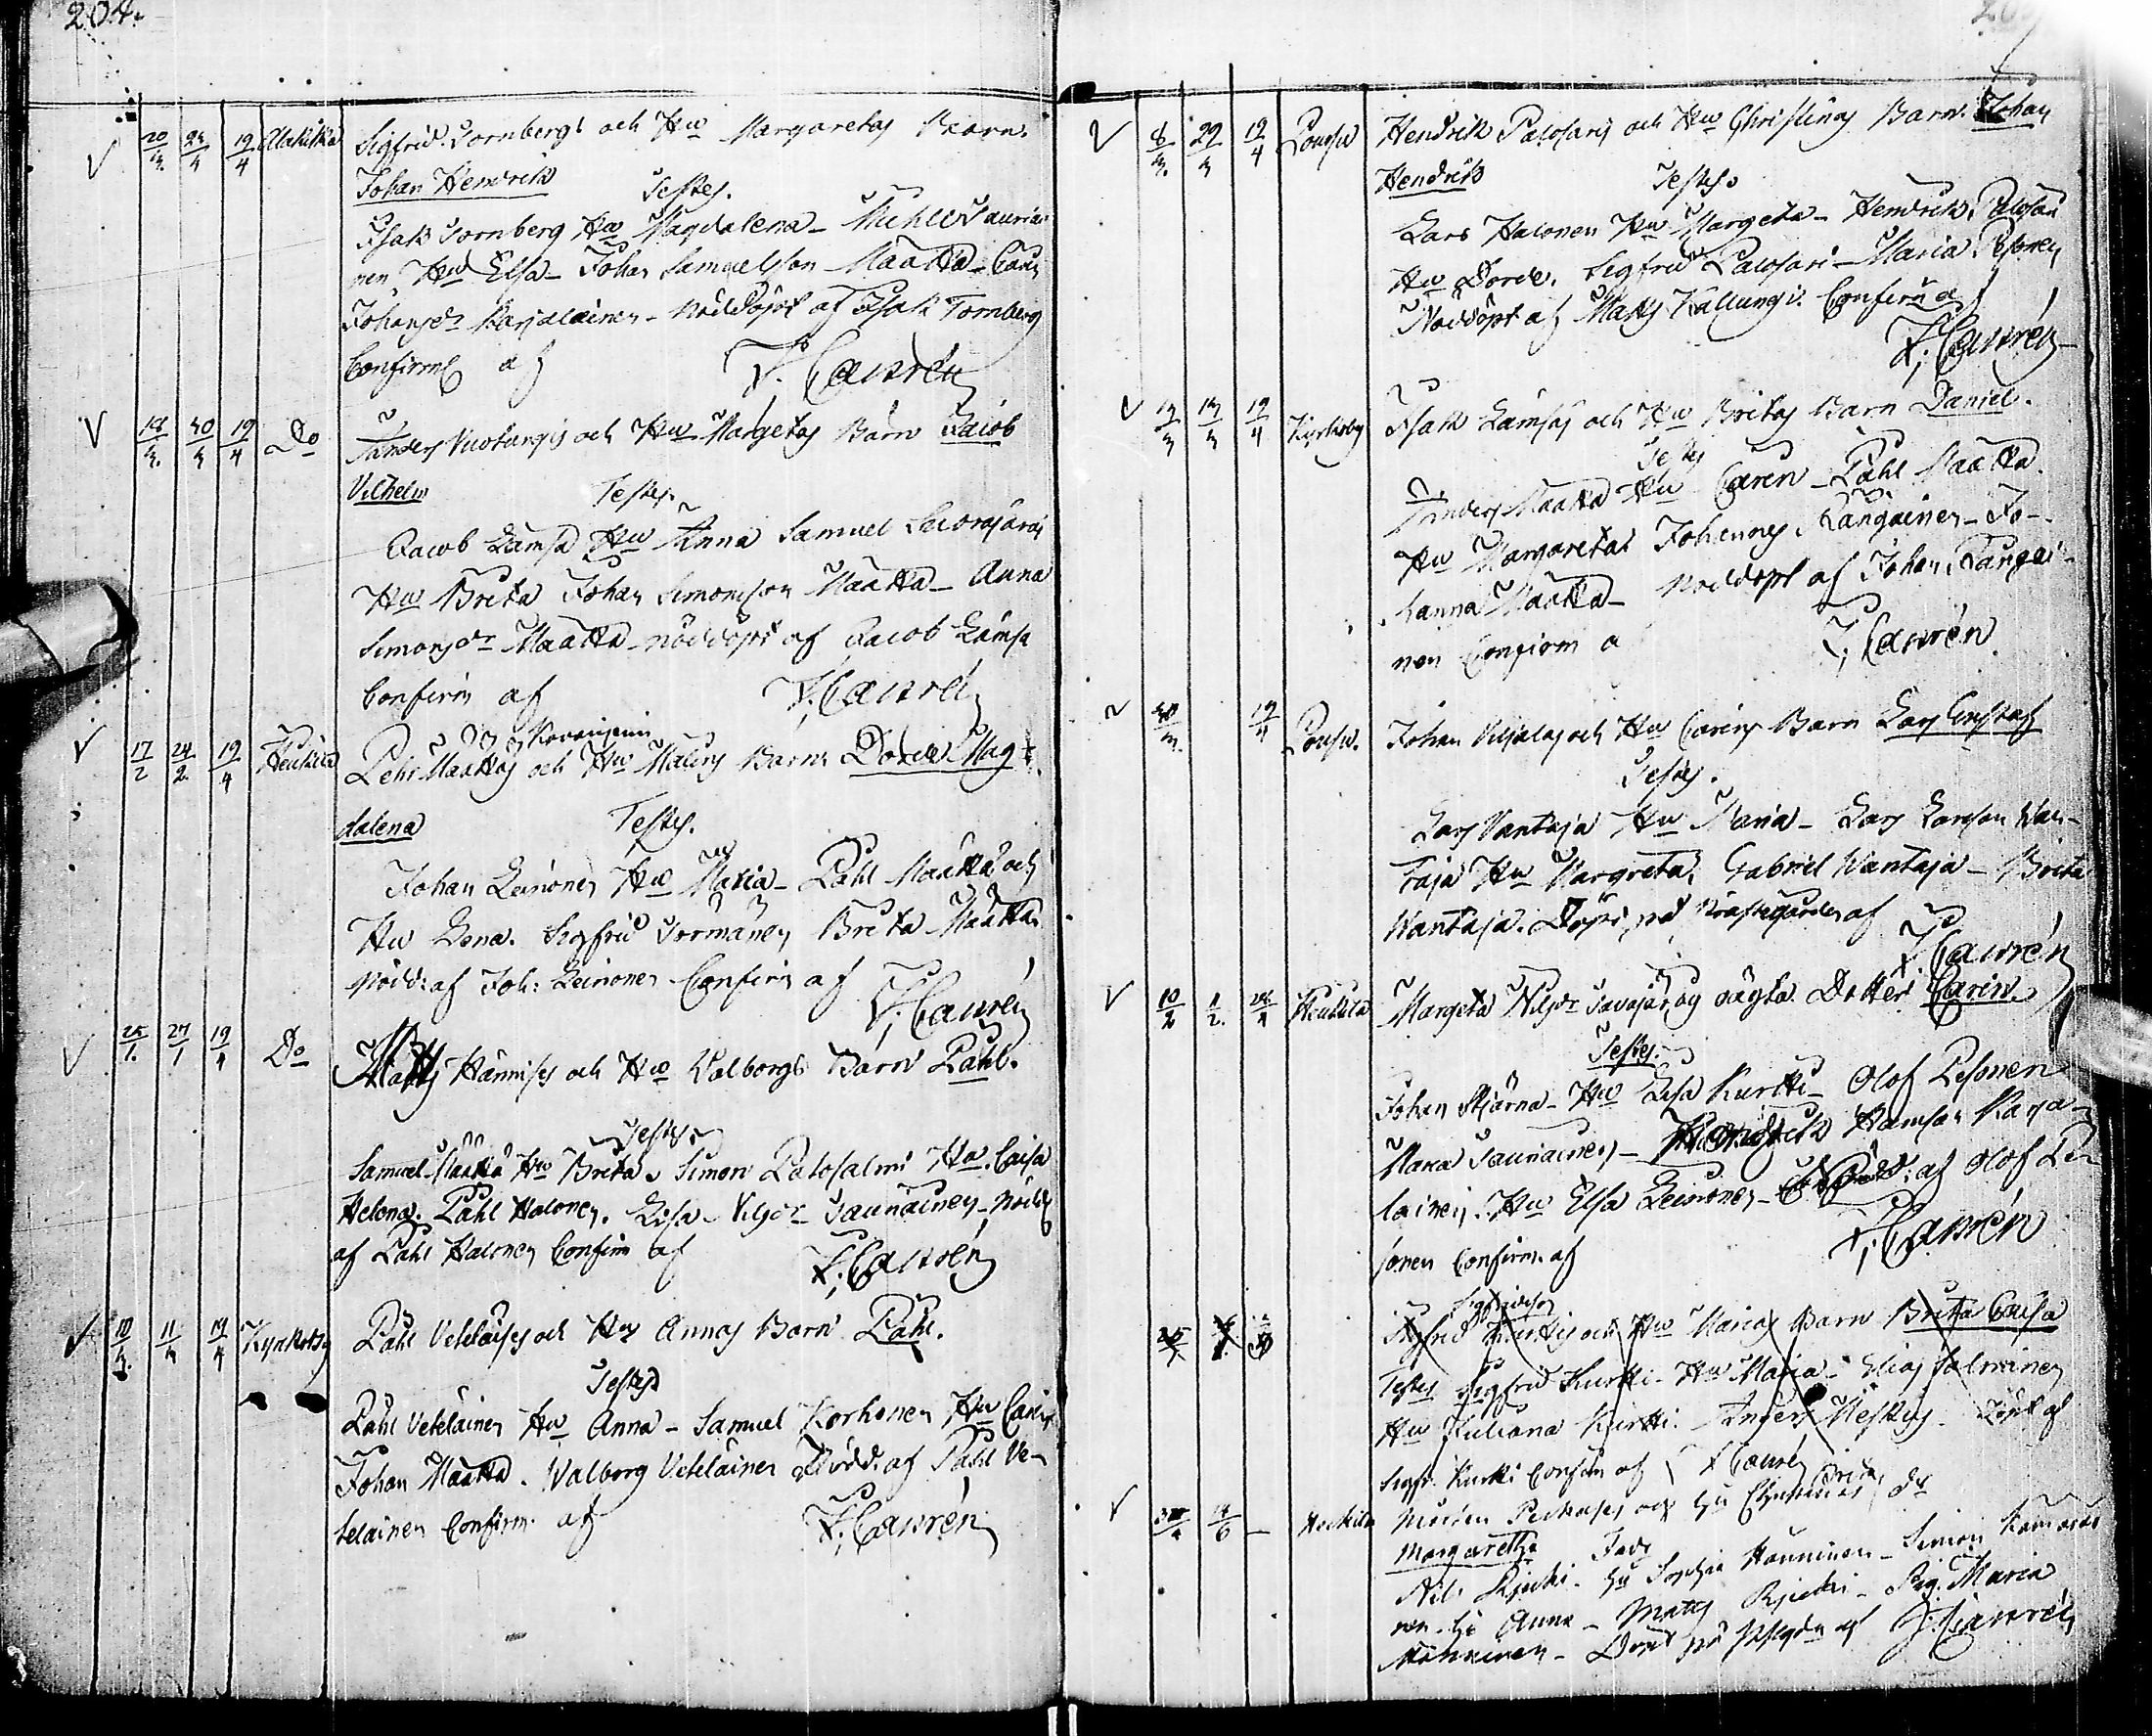 204.
20/3. 23/3 19/4 Alakitka Sigfrid Tornbergs och Hu Margaretas Barn
Johan Hendrik Testes.
Isak Tornberg Hu Magdalena - Michel Tauriai-
nen, Hu Elsa - Johan Samuelsson Määttä - Carin
Johansdr Karjalainen - nöddöpt af Isak Tornberg
Confirm af J. Cawrén
18/3. 30/3 19/4 Do Anders Vuotungis och Hu Margetas Barn Jacob
Vilhelm Testes.
Jacob Lämsä Hu Anna Samuel
Hu Brita Johan Simonsson Määttä - Anna
Simonsdr Määttä - nöddöpt af Jacob Lämsä
Confirm af J. Cawrén
Kovanjemi
17/2 24/2 19/4 Heikilä Pehr Määttäs och Hu Malins Barn Dordi Mag-
dalena Testes.
Johan Leinonen Hu Maria - Påhl Määttä och
Hu Lena. Sigfrid Törmänen Brita Määttä
nödd: af Joh: Leinonen Confirm af J. Cawrén
25/1. 27/1 19/4 Do Matts Hännises och Hu Valborgs Barn Påhl.
Testes
Samuel Määttä Hu Brita, Simon Palosalmi Hu. Caisa
Helena. Påhl Halonen. Lisa Nilsdr Taurainen - nödd
af Påhl Halonen Confirm af J. Cawrén
10/3. 11/3 19/4 Kyrkoby Påhl Veteläises och Hu Annas Barn Påhl.
Testes
Påhl Veteläinen Hu Anna - Samuel Korhonen Hu Carin
Johan Määttä. Walborg Veteläinen Nödd. af Påhl Ve-
teläinen Confirm. af J. Cawrén
8/3. 29/3 19/4 Pousu Hendrik Palosaris och Hu Christinas Barn Johan
Hendrik Testes
Lars Halonen Hu Margeta - Hendrik Palosari
Hu Dorde. Sigfrid Palosari - Maria Pesonen
Nöddöpt af Matts Kallungi. Confirm af
J. Cawrén
13/3 19/4 Kyrkoby Isak Lämsäs och Hu Britas Barn Daniel.
Testes
Anders Määttä Hu Caren - Påhl Määttä.
Hu Margareta Johannes Kangainen - Jo-
hanna Määttä - nöddöpt af Johan Kangai-
nen Confirm a J. Cawrén.
30/3. 19/4 Pousu. Johan och Hu Carins Barn Lars Gustaf
Testes.
Lars Vantaja Hu Maria - Lars Larsson Wan-
taja Hu Margreta. Gabriel Wantaja - Brita
Wantaja. Döpt på Prästegården af
J. Cawrén
10/2 2. Heikilä Margeta Nilsdr oägta Dotter Carin.
Testes.
Johan Stjärna - Hu Lisa Kurtti - Olof Pesonen
Maria Taurainen - Hendrik Karja-
lainen. Hu Elsa Leinonen - Nödd: af Olof Pe-
sonen Confirm. af J. Cawrén
Sigfridsson
Sigfrid Kurttis och Hu Marias Barn Brita Caisa
Testes Sigfrid Kurtti - Hu Maria - Elias Salminen
Hu Juliana Kurtti. Anders Döpt af
Sigfr. Kurtti Confirm af J Cawrén
Heikilä och Hu Christinas dr Brita
Margaretha Fadd
Nils Hu Sophia Hänninen - Simon
nen. Hu Anna - Matts - Pig. Maria
Hänninen - Döpt på af J. Cawrén